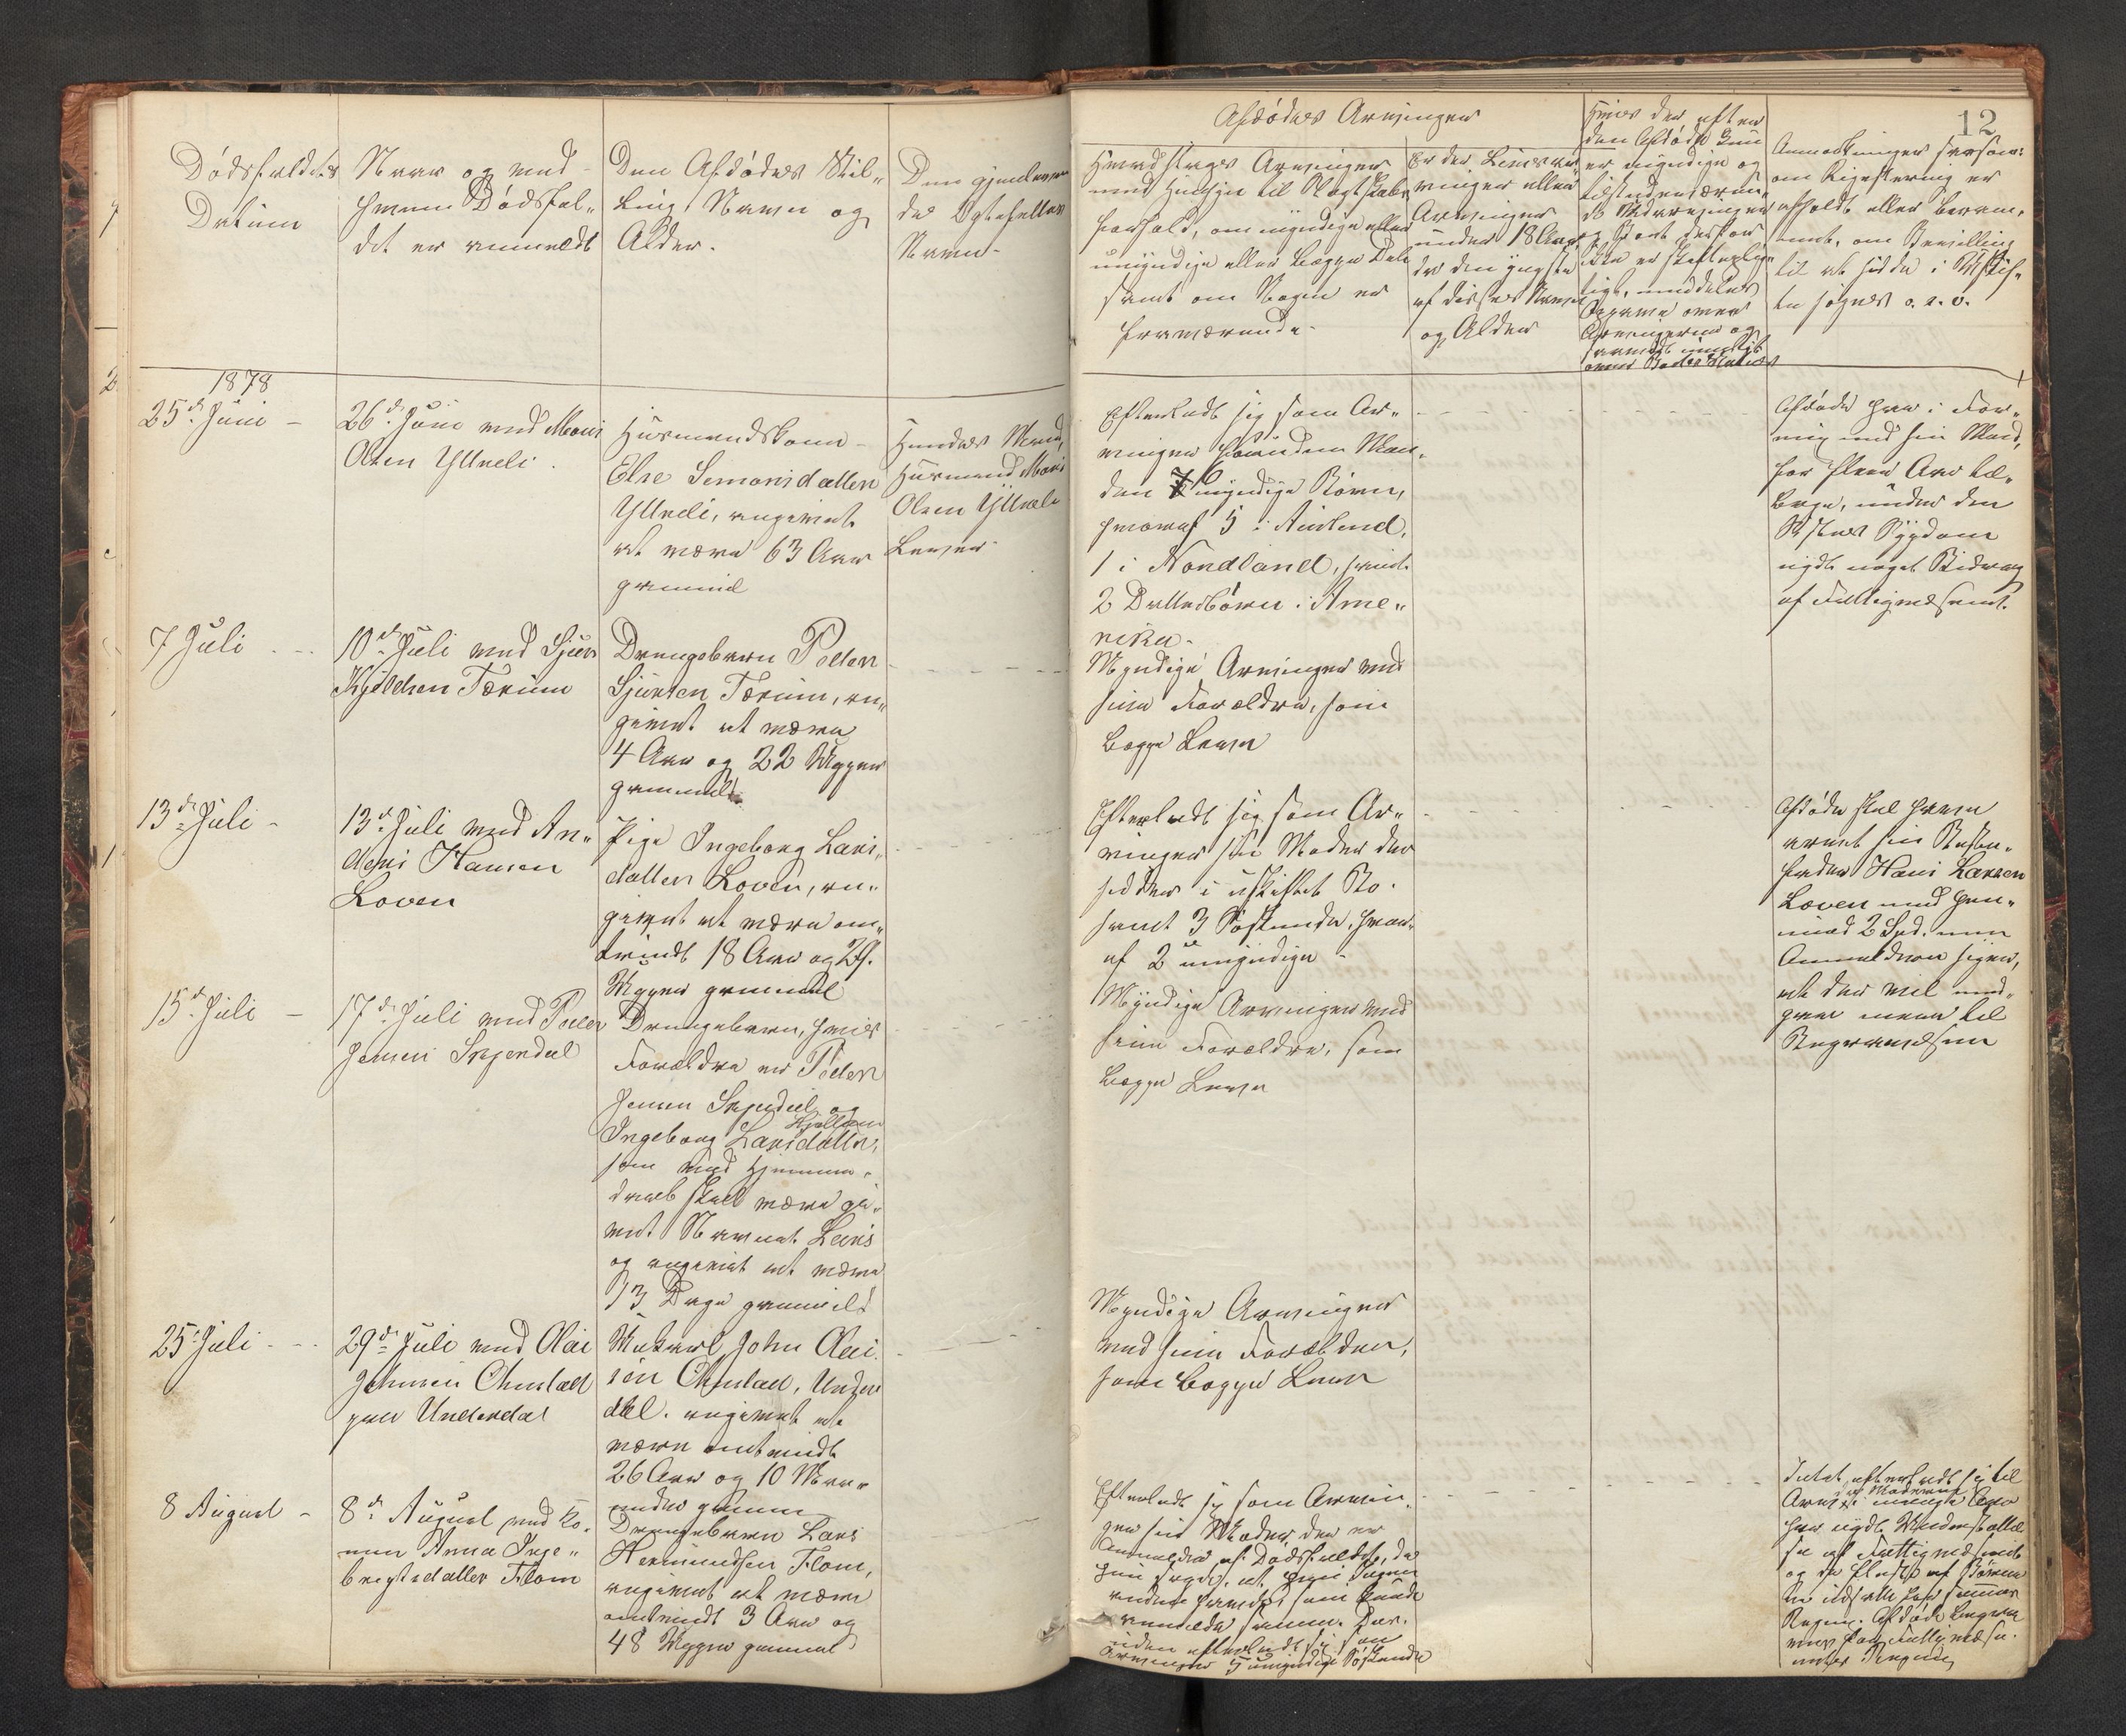 12
Dødsfaldets
Datum
Naar og med
hvem Dødsfal„
det er anmeldt
Den Afdødes Stil„
ling Navn og
Alder.
Den gjenleven
de Ægtefelles
Navn-
Afdødes Arvinger
Hvad slags Arvinger
med Hensyn til Slægtskabs
forhold, om myndige eller
umyndige eller begge Dele
samt om Nogen er
fraværende-
Er der Livsar„
vinger eller
Arvinger
under 18 Aar,
da den yngste
af disses Navn
og Alder
Hvis der efter
den Afdøde kun
er myndige og
tilstedeværen„
de Medarvinger
og Boet desfor
ikke er skifteplig„
tigt, meddeles
Opgave over
Arvingerne og
Anmærkninger saasom:
om Registering er
afholdt eller beram„
met, om Bevilling
til at sidde i Uskif„
te søges o. s. v.
1878
25de Juni -
26de Juni med Mons
Olsen Ytreli.
Husmandskone
Else Simonsdatter
Ytreli, angivet
at være 63 Aar
gammel
Hendes Mand,
Husmand Mons
Olsen Ytreli
Lever-
Efterladt sig som Ar„
vinger foruden Man„
den 6 myndige Børn,
hvoraf 5 i Aurland,
1 i Nordland, samt
2 Datterbørn i Ame„
rika.
Afdøde har i For„
ning med sin Mand,
for flere Aar til„
bage, under den
Sidstes Sygdom
nydt noget Bidrag
af Fattigvæsenet.
7 Juli
10de Juli med Sjur
Kjeldsen Tærum
Drengebarn Peder
Sjursen Tærum, an„
givet at være
4 Aar og 22 Uger
gammel.
Myndige Arvinger med
sine Forældre, som
begge Lever
13de Juli -
13de Juli med An„
ders Hansen
Loven
Pige Ingeborg Lars„
datter Loven, an„
givet at være om„
trindt 18 Aar og 29
Uger gammel
Efterladt sig som Ar„
vinger sin Moder der
sidder i uskiftet Bo.
samt 3 Søskende, hvor„
af 2 umyndige -
Afdøde skal have
arvet sin Beste„
fader Hans Larsen
Loven med hen„
imod 2 Spd. men
Anmelderen siger,
at der vil med„
gaae mere til
Begravelsen
15de Juli -
17de Juli med Peder
Jensen Skjerdal
Drengebarn, hvis
Forældre er Peder
Jensen Skjerdal og
Ingeborg Larsdatter,
som ved Hjemme„
daab skal være gi„
vet Navnet Lars
og angivet at være
13 Dage gammelt
Myndige Arvinger med
sine Forældre, som
begge Lever
25 Juli
29de Juli med Olai
Johnsen
paa Underdal
Ungkarl John Olai„
sen
Under
dal. angivet at
være omtrindt
26 Aar og 10 Maa„
neder gammel
Myndige Arvinger
med sine Forældre,
som begge Lever
8 August -
8de August med Ko„
nen Anna Inge„
brigtsdatter Flom
Drengebarn Lars
Hermundsen Flom,
angivet at være
omtrindt 3 Aar og
48 Uger gammel
Efterladt sig som Arvin„
ger sin Moder, der er
Anmelder af Dødsfaldet, da
hun siger, at hun Ingen
anden havde som kunde
anmelde samme. Des„
uden efterladt sig som
Arvinger 5 umyndige Søskende
Intet efterladt sig til
Arv,
Moderen
i mange Aar
har nydt Understøttel„
se af Fattigvæsenet
og de fleste af Børnene
ere udsatte paa sammes
Regning. Afdøde begraves
paa Fattigvæse„
nets Regning